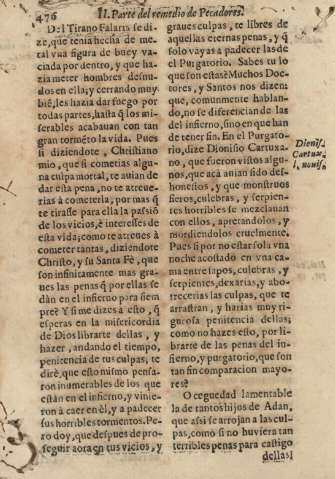 476
II. Parte del remedio de Pecadores.
Del Tirano Falaris se di
ze, que tenia hecha de me-
tal vna figura de buey va-
ciada por dentro, y que ha-
zia meter hombres desnu-
dos en ella; y cerrando muy
bié, les hazia dar fuego por
todas partes, hasta q̃ los mi-
serables acabauan con tan
gran torméto la vida. Pues
si diziendote, Christiano
mio, que si cometias algu-
na culpa mortal, te auian de
dar esta pena, no te atreue-
rias à cometerla; por mas q̃
te tirasse para ella la passiõ
de los vicios, è interesses de
esta vida; como te atreues à
cometer tantas, diziendote
Christo, y su Santa Fè, que
son infinitamente mas gra-
ues las penas q̃ por ellas se
dàn en el infierno para siem
pre? Y si me dizes à esto, q̃
esperas en la misericordia
de Dios librarte dellas, y
hazer, andando el tiempo,
penitencia de tus culpas, te
dirè, que esto mismo pensa-
ron inumerables de los que
estàn en el infierno, y vinie-
ron à caer en èl, y a padecer
sus horribles tormentos. Pe-
ro doy, que despues de pro-
seguir aora en tus vicios, y
graues culpas, te libres de
aquellas eternas penas, y q̃
solo vayas à padecer las de
el Purgatorio. Sabes tu lo
que son estas? Muchos Doc-
tores, y Santos nos dizen:
que, comunmente hablan-
do, no se diferencian de las
del infierno, sino en que han
de tener fin. En el Purgato-
rio, dize Dionisio Cartuxa-
no, que fueron vistos algu-
nos, que acà auian sido des-
honestos, y que monstruos
fieros, culebras, y serpien-
tes horribles se mezclauan
con ellos, apretandolos, y
mordiendolos cruelmente.
Pues si por no estar sola vna
noche acostado en vna ca-
ma entre sapos, culebras, y
serpientes, dexarias, y abo-
recerias las culpas, que te
arrastran, y harias muy ri-
gurosa penitencia dellas;
como no hazes esto, por li-
brarte de las penas del in-
fierno, y purgatorio, que son
tan sin comparacion mayo-
res?
O ceguedad lamentable
la de tantos hijos de Adan,
que assi se arrojan a las cul-
pas, como si no huviera tan
terribles penas para castigo
dellas!
Dionis.
Cartux.